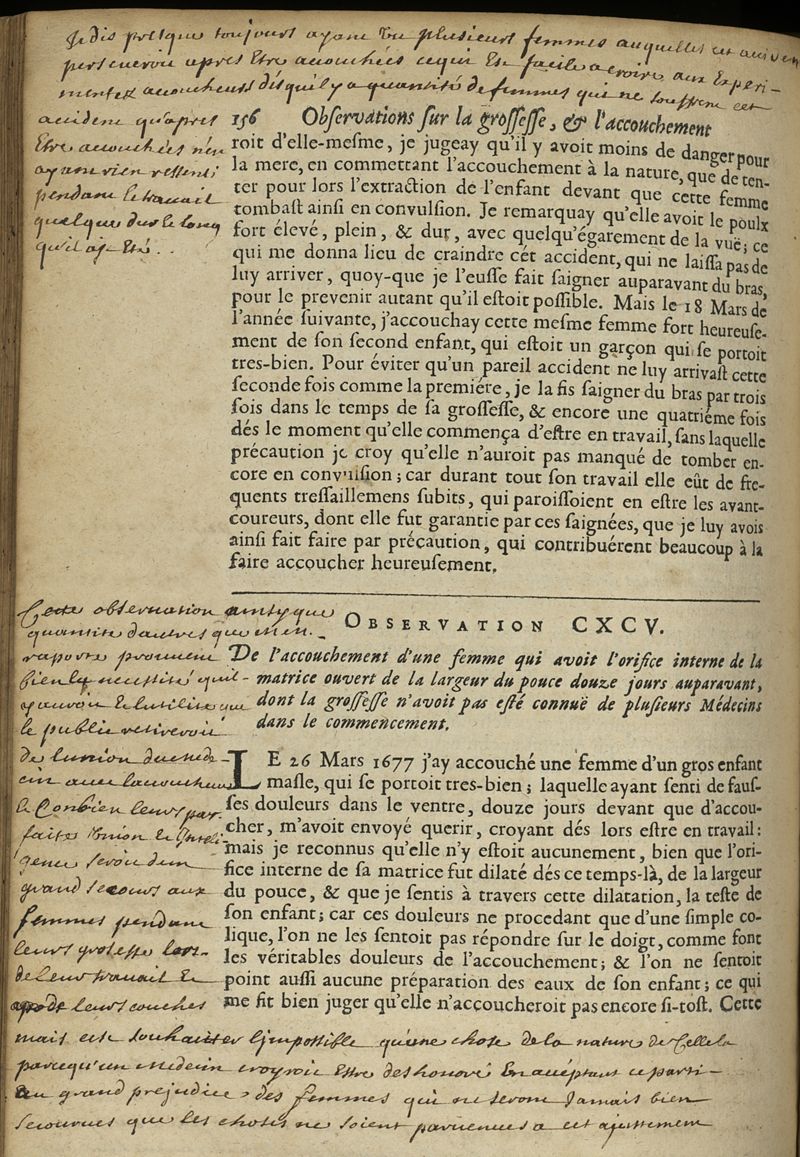 Je dis presque toujours ayant vu plusieurs femmes auquelles cet
perseveroit apres estre accouchées cequi est facile a croire aux experi-
mentes accoucheurs dis quil y a quantité de femmes qui ne souffrent cet
accident qu'apres
estre accouchées n'en
ayant rien ressenti
pendant le travail
quelque dur le long
qu'il aye esté . .
156 Observations sur la grossesse, & l'accouchement
roit d'elle-mesme, je jugeay qu'il y avoit moins de danger pour
la mere, en commettant l'accouchement à la nature, que de ten-
ter pour lors l'extraction de l'enfant devant que cette femme
tombast ainsi en convulsion. Je remarquay qu'elle avoit le poulx
fort élevé, plein, & dur, avec quelqu'égarement de la vuë; ce
qui me donna lieu de craindre cét accident, qui ne laissa pas de
luy arriver, quoy-que je l'eusse fait saigner auparavant du bras,
pour le prevenir autant qu'il estoit possible. Mais le 18 Mars de
l'année suivante, j'accouchay cette mesme femme fort heureuse-
ment de son second enfant, qui estoit un garçon qui se portoit
tres-bien. Pour éviter qu'un pareil accident ne luy arrivast cette
seconde fois comme la premiére, je la fis saigner du bras par trois
fois dans le temps de sa grossesse, & encore une quatriéme fois
dés le moment qu'elle commença d'estre en travail, sans laquelle
précaution je croy qu'elle n'auroit pas manqué de tomber en-
core en convulsion; car durant tout son travail elle eût de fre-
quents tressaillemens subits, qui paroissoient en estre les avant-
coureurs, dont elle fut garantie par ces saignées, que je luy avois
ainsi fait faire par précaution, qui contribuérent beaucoup à la
faire accoucher heureusement.
OBSERVATION CXCV.
De l'accouchement d'une femme qui avoit l'orifice interne de la
matrice ouvert de la largeur du pouce douze jours auparavant,
dont la grossesse n'avoit pas esté connuë de plusieurs Médecins
dans le commencement.
LE 26 Mars 1677 j'ay accouché une femme d'un gros enfant
masle, qui se portoit tres-bien; laquelle ayant senti de faus-
ses douleurs dans le ventre, douze jours devant que d'accou-
cher, m'avoit envoyé querir, croyant dés lors estre en travail:
mais je reconnus qu'elle n'y estoit aucunement, bien que l'ori-
fice interne de sa matrice fut dilaté dés ce temps-là, de la largeur
du pouce, & que je sentis à travers cette dilatation, la teste de
son enfant; car ces douleurs ne procedant que d'une simple co-
lique, l'on ne les sentoit pas répondre sur le doigt, comme font
les véritables douleurs de l'accouchement; & l'on ne sentoit
point aussi aucune préparation des eaux de son enfant; ce qui
me fit bien juger qu'elle n'accoucheroit pas encore si-tost. Cette
Cette observation
quantité dautres que
raporte prouvent
bien la necessité quil
y auroit & lutilité que
le public retireroit
de lunion du mede-
cin avec laccoucheur
& Conbien leur par-
faite union & Intelli
gence seroit dun
grand secours aux
femmes pendant
leurs grossesse lors-
de leur travail &
de leurs couches
mais est souhaiter limpossible qu'une chose de la nature de Celle la
parcequ'un medecin croyroit estre deshonoré En acceptant ce parti
au grand prejudice, des femmes qui ne seront Jamais bien
secourues que les choses ne soient parvenues a cet ajustement